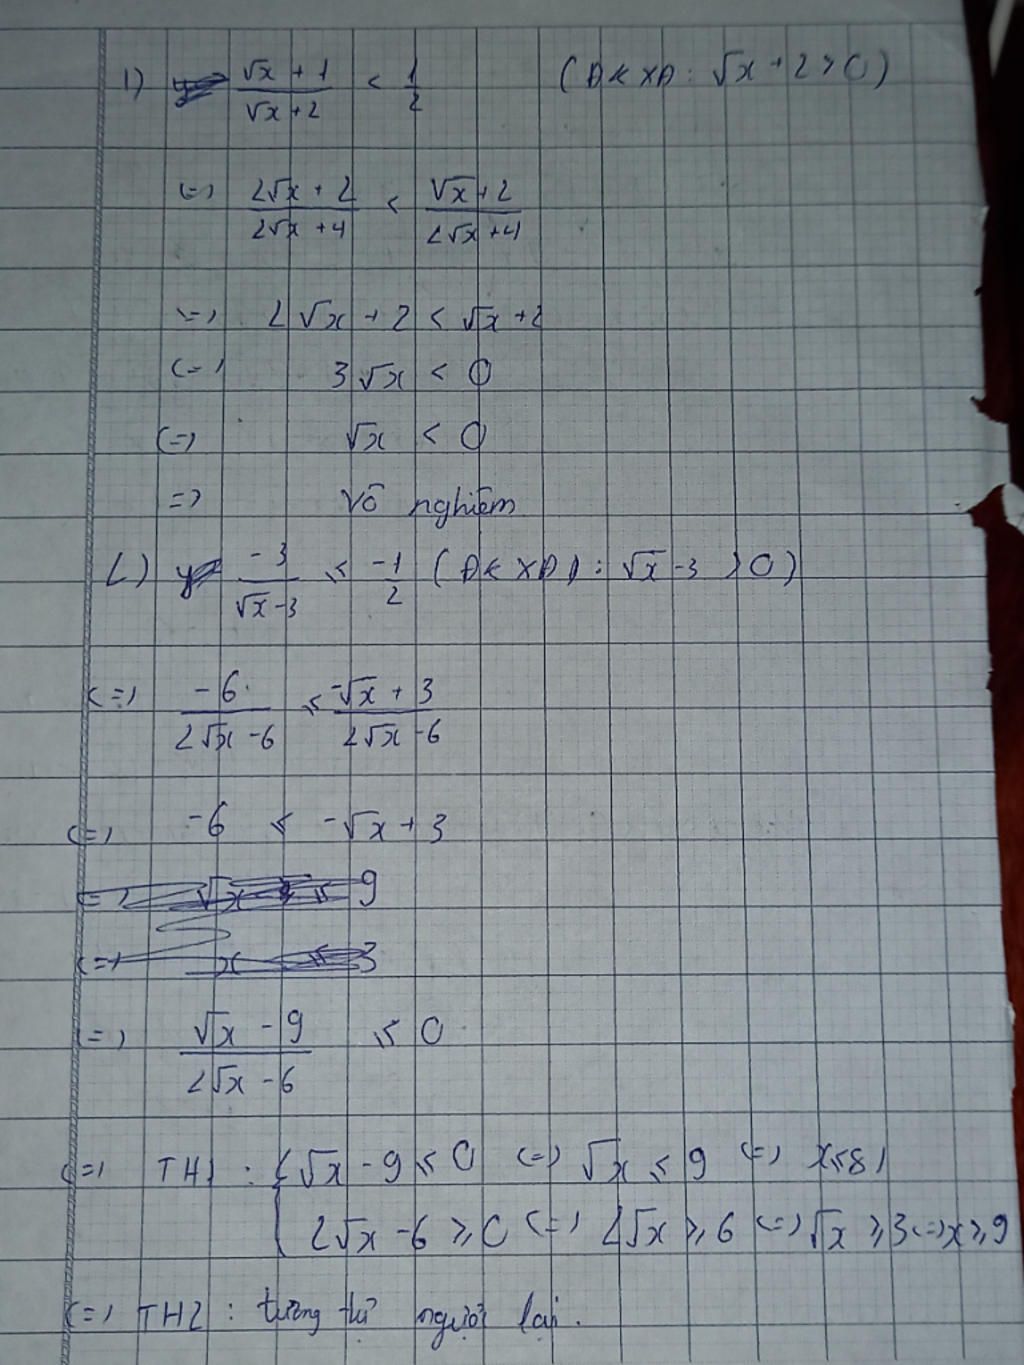 1) (√x + 1)/(√x + 2) < 1/2 (ĐKXĐ: √x + 2 > 0)
<=> (2√x + 2)/(2√x + 4) < (√x + 2)/(2√x + 4)
<=> 2√x + 2 < √x + 2
<=> 3√x < 0
<=> √x < 0
=> Vô nghiệm
2) -3/(√x - 3) ≤ -1/2 (ĐKXĐ): √x - 3 > 0)
<=> -6/(2√x - 6) ≤ (-√x + 3)/(2√x - 6)
<=> -6 ≤ -√x + 3
<=> √x ≤ 9
<=> x ≤ 3
<=> (√x - 9)/(2√x - 6) ≤ 0
<=> TH1: { √x - 9 ≤ 0 <=> √x ≤ 9 <=> x ≤ 81
2√x - 6 ≥ 0 <=> 2√x ≥ 6 <=> √x ≥ 3 <=> x ≥ 9
<=> TH2: tương tự ngược lại.